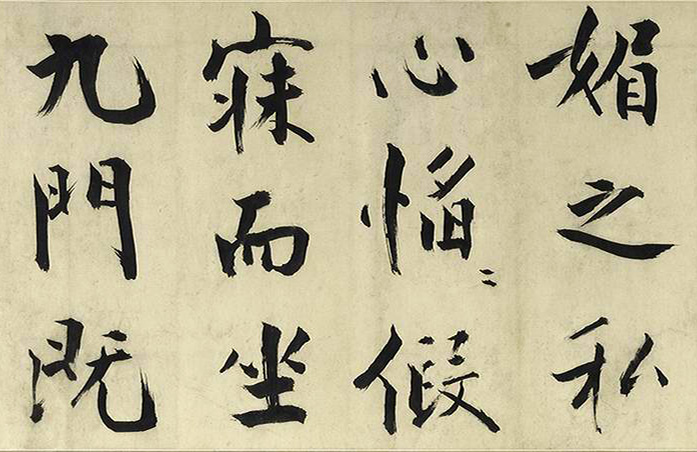 媚之私
心慆〻假
寐而坐
九門既